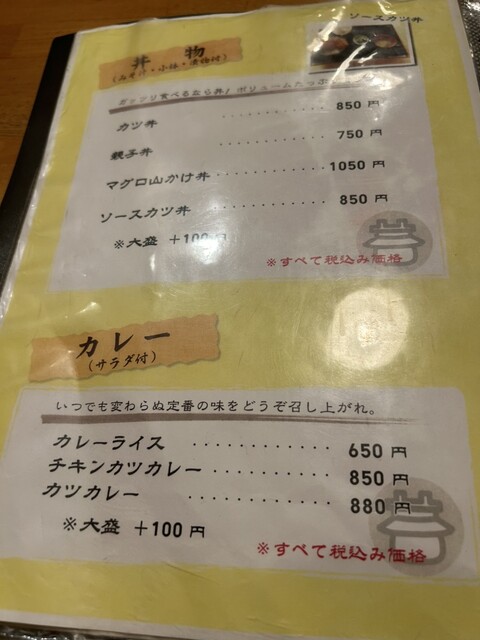 ソースカツ丼
丼 物
(みそ汁・小鉢・漬物付)
ガッツリ食べるなら丼! ボリュームたっぷ
カツ丼 ............ 850 円
親子丼 ............ 750 円
マグロ山かけ丼 ............ 1050 円
ソースカツ丼 ............ 850 円
※大盛 +100 円
※すべて税込み価格
カレー
(サラダ付)
いつでも変わらぬ定番の味をどうぞ召し上がれ。
カレーライス ............ 650 円
チキンカツカレー ............ 850 円
カツカレー ............ 880 円
※大盛 +100 円
※すべて税込み価格